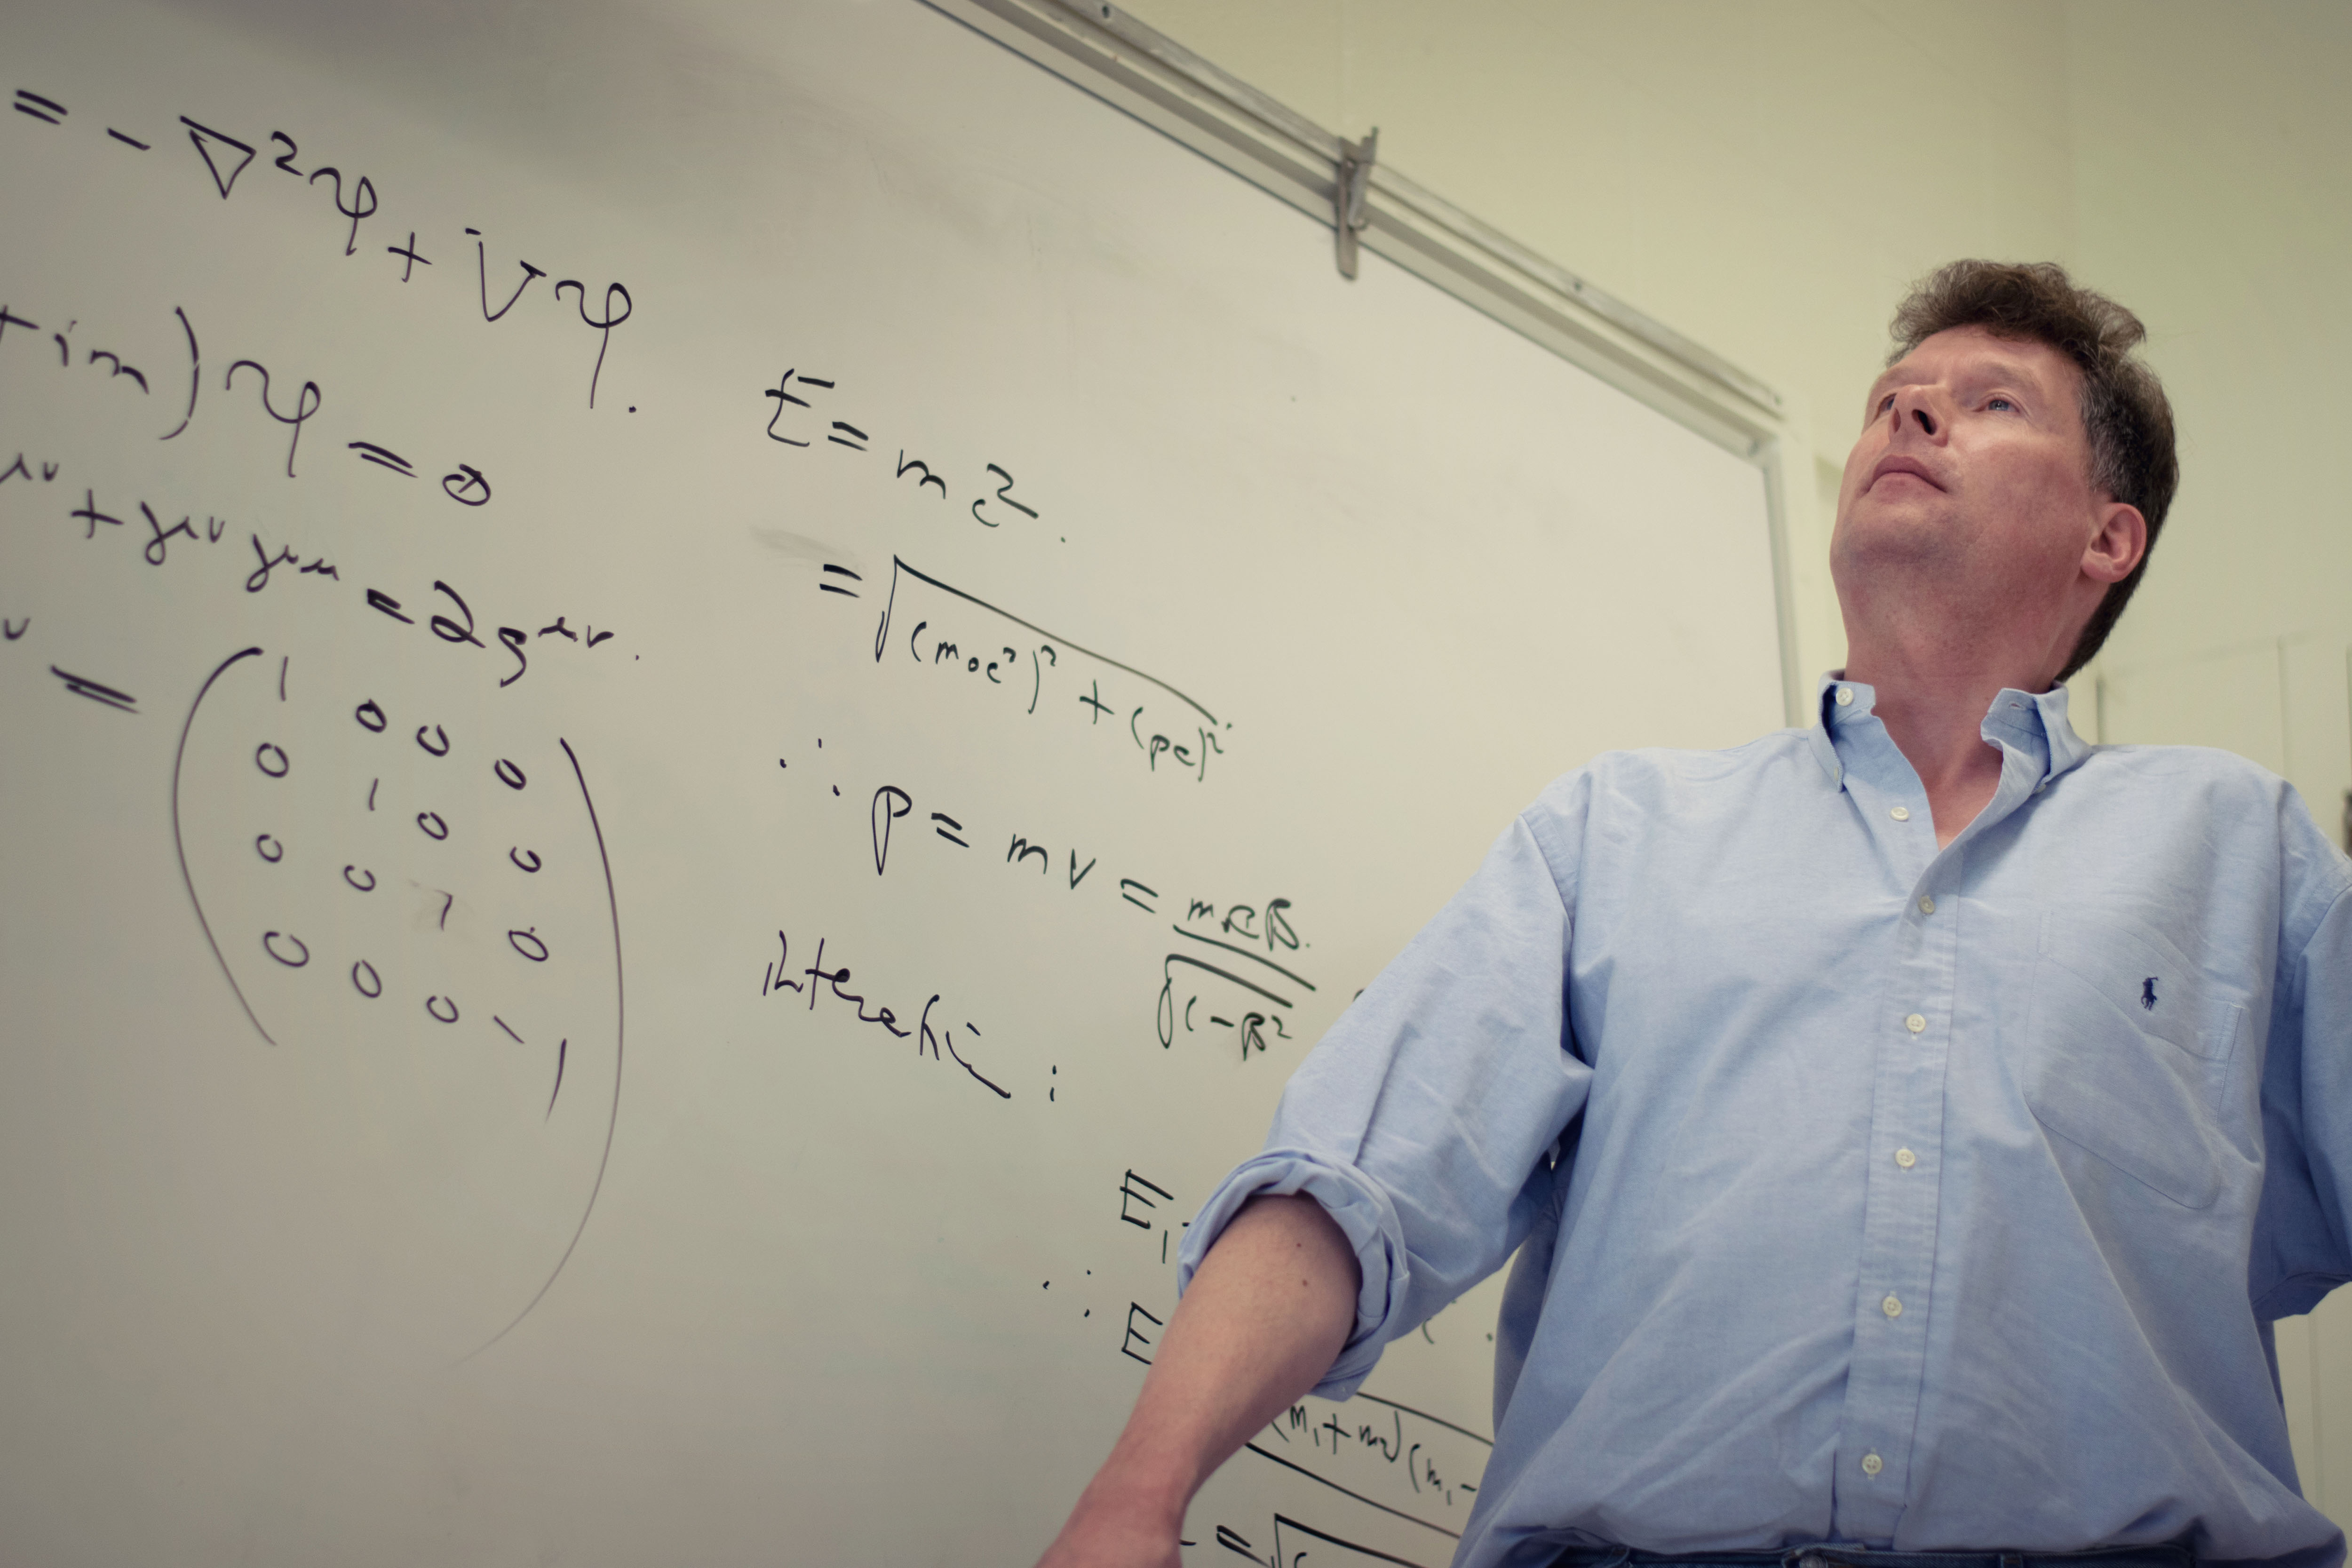 = - ∇²ψ + iVψ.
+im)ψ = 0
μν + γμν γνμ = 2gμν.
ν = (1 0 0 0
0 1 0 0
0 0 1 0
0 0 0 1)
E = mc².
= √(m₀c²)² + (pc)²
∴ p = mv = mcβ. / √1-β²
interaction :
E₁
∴ E
(m₁+m₂)(m₁-
= √(